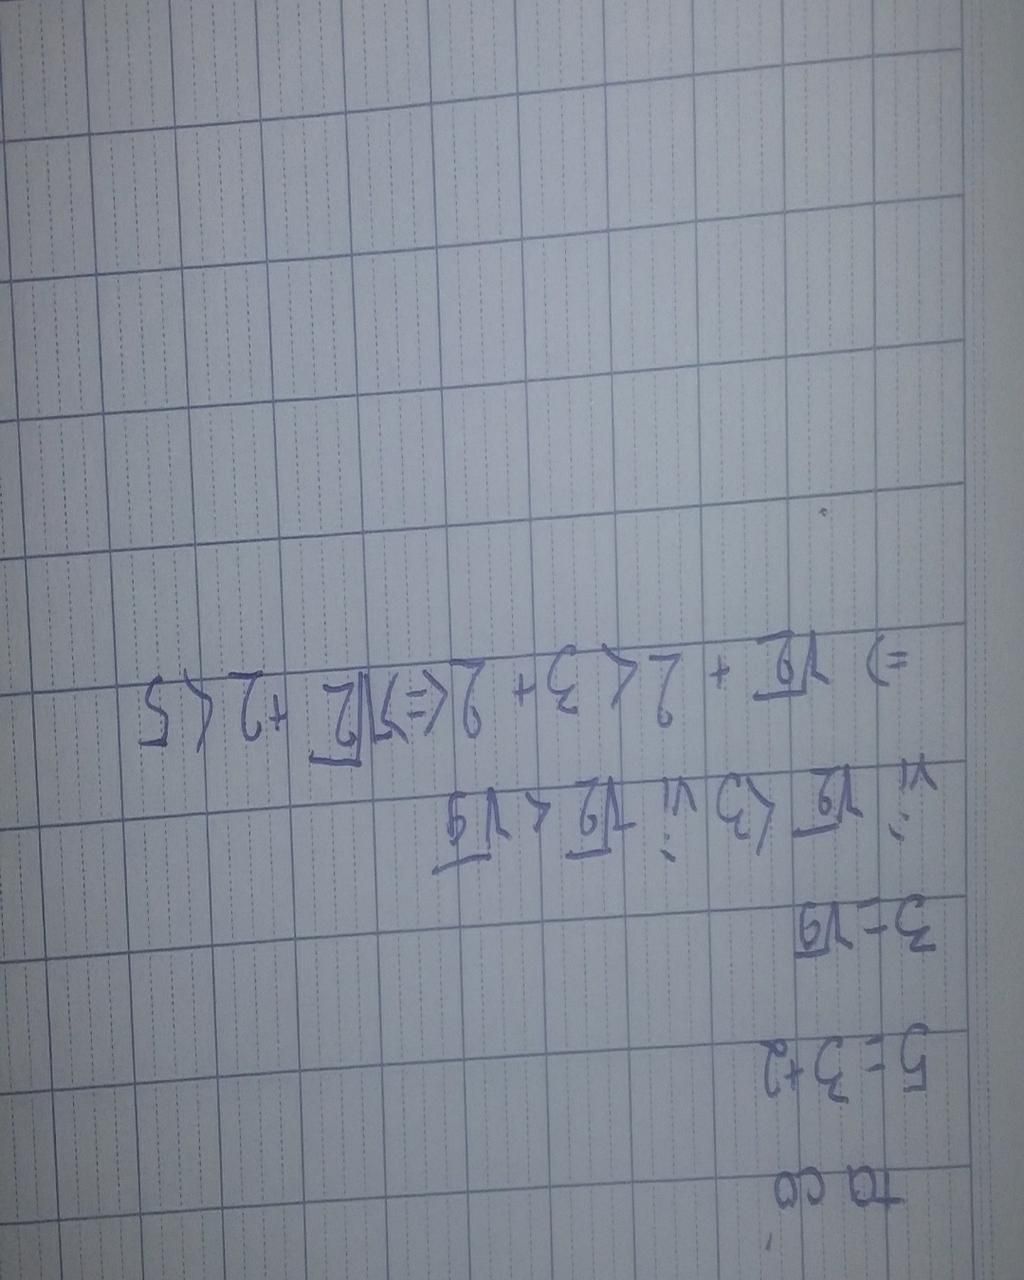 ta có
5 = 3+2
3 = √9
vì √2 < 3 vì √2 < √9
=> √2 + 2 < 3 + 2 <=> √2 + 2 < 5